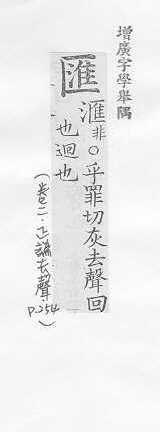 增廣字學舉隅
匯
滙非○乎罪切灰去聲回
也迴也
(卷二.正譌.去聲.P.254)